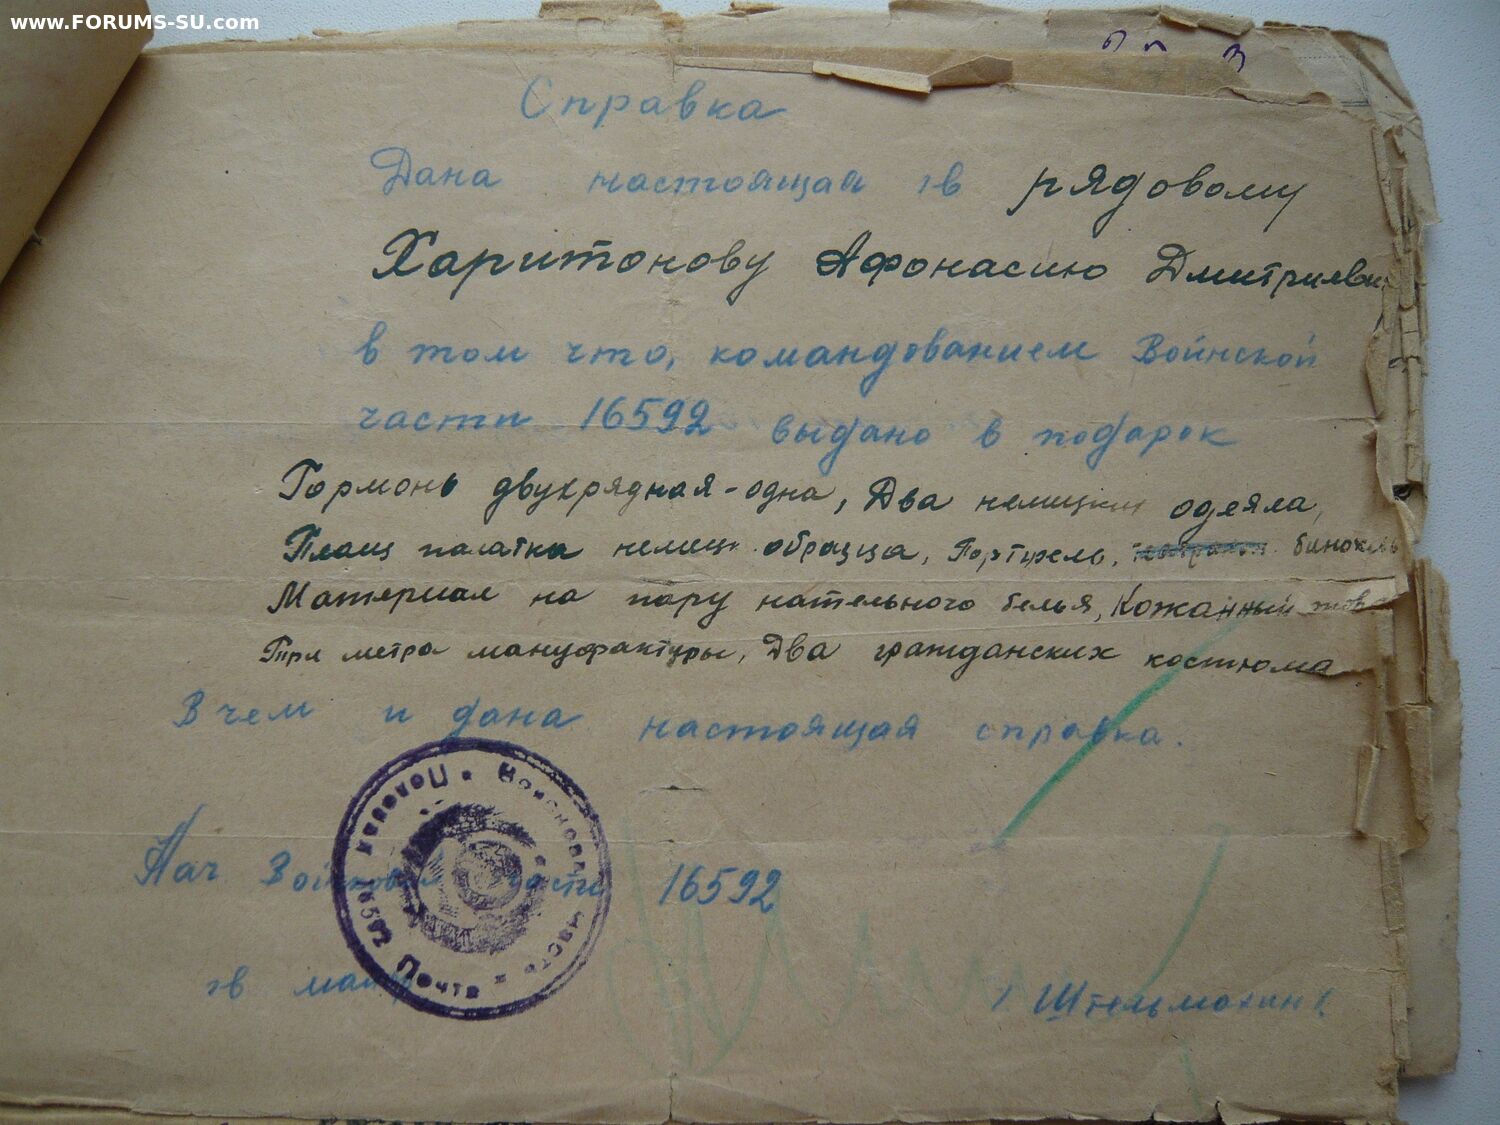 www.FORUMS-SU.com
Справка
Дана настоящая гв рядовому
Харитонову Афонасию Дмитриевич
в том что, командованием Войнской
части 16592 выдано в подарок
Гормонь двухрядная-одна, Два немецких одеяла,
Плащ палатка немецк. образца, Портфель, бинокль
Материал на пару нательного белья, Кожанный
Три метра мануфактуры, Два гражданских костюма
В чем и дана настоящая справка.
Полевая Почта Войсковая часть
Нач Войсковой части 16592
гв майор